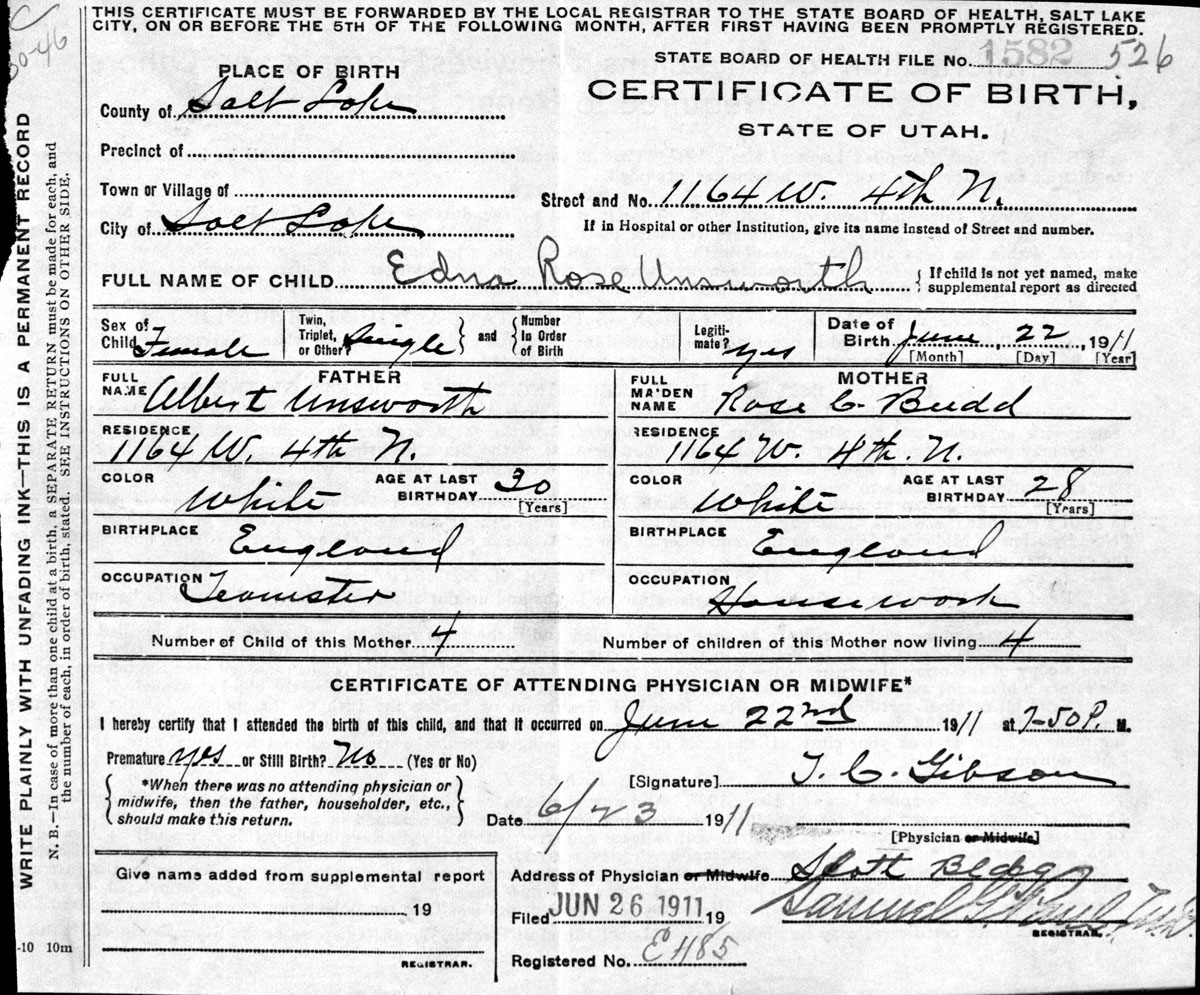 THIS CERTIFICATE MUST BE FORWARDED BY THE LOCAL REGISTRAR TO THE STATE BOARD OF HEALTH, SALT LAKE
CITY, ON OR BEFORE THE 5TH OF THE FOLLOWING MONTH, AFTER FIRST HAVING BEEN PROMPTLY REGISTERED.
C
30-46
STATE BOARD OF HEALTH FILE No. 1582 526
PLACE OF BIRTH
CERTIFICATE OF BIRTH,
County of Salt Lake
STATE OF UTAH.
Precinct of
Town or Village of
Street and No 1164 W. 4th N.
City of Salt Lake
If in Hospital or other Institution, give its name instead of Street and number.
FULL NAME OF CHILD Edna Rose Unsworth
{ If child is not yet named, make
supplemental report as directed
Sex of Child Female
Twin, Triplet, or Other? Single } and { Number In Order of Birth
Legiti-mate? yes
Date of Birth June 22 1911
[Month] [Day] [Year]
FATHER
FULL NAME Albert Unsworth
MOTHER
FULL MAIDEN NAME Rose C. Budd
RESIDENCE 1164 W. 4th N.
RESIDENCE 1164 W. 4th. N.
COLOR White AGE AT LAST BIRTHDAY 30 [Years]
COLOR White AGE AT LAST BIRTHDAY 28 [Years]
BIRTHPLACE England
BIRTHPLACE England
OCCUPATION Teamster
OCCUPATION Housework
Number of Child of this Mother 4
Number of children of this Mother now living 4
CERTIFICATE OF ATTENDING PHYSICIAN OR MIDWIFE*
I hereby certify that I attended the birth of this child, and that it occurred on June 22nd 1911 at 7-50 P. M.
Premature yes or Still Birth? No (Yes or No)
*When there was no attending physician or
midwife, then the father, householder, etc.,
should make this return.
[Signature] T. C. Gibson
Date 6/23 1911
[Physician or Midwife]
Give name added from supplemental report
19
REGISTRAR.
Address of Physician or Midwife Scott Bldg
Filed JUN 26 1911 19
Samuel G.
REGISTRAR.
Registered No. E485
-10 10m
WRITE PLAINLY WITH UNFADING INK—THIS IS A PERMANENT RECORD
N. B.—In case of more than one child at a birth, a SEPARATE RETURN must be made for each, and
the number of each, in order of birth, stated. SEE INSTRUCTIONS ON OTHER SIDE.